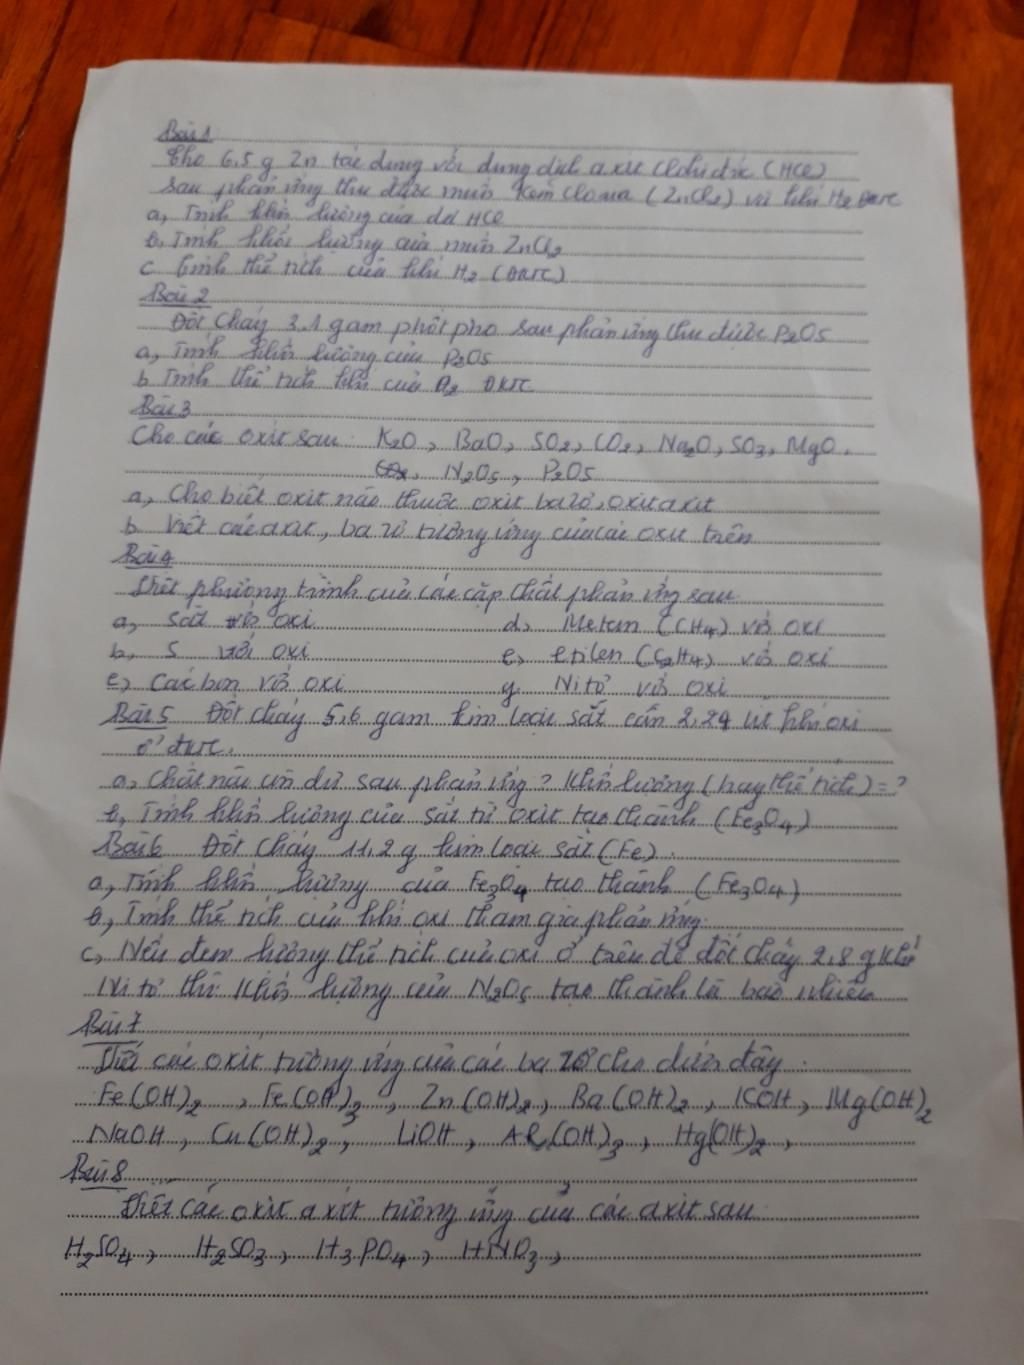 Bài 1
Cho 6,5 g Zn tác dụng với dung dịch axit Clohiđric (HCl)
sau phản ứng thu được muối Kẽm Clorua (ZnCl2) và khí H2 ĐKTC
a, Tính khối lượng của dd HCl
b, Tính khối lượng của muối ZnCl2
c Tính thể tích của khí H2 (ĐKTC)
Bài 2
Đốt cháy 3.1 gam phốt pho sau phản ứng thu được P2O5
a, Tính khối lượng của P2O5
b Tính thể tích khí của O2 ĐKTC
Bài 3
Cho các oxit sau: K2O, BaO, SO2, CO2, Na2O, SO3, MgO,
N2O5, P2O5
a, Cho biết oxit nào thuộc oxit bazơ, oxit axit
b Viết các axit, bazơ tương ứng của các oxit trên
Bài 4
Viết phương trình của các cặp chất phản ứng sau
a, sắt với oxi d, Metan (CH4) với oxi
b, S với oxi e, etilen (C2H4) với oxi
c, Cácbon với oxi g Nitơ với oxi
Bài 5 Đốt cháy 5,6 gam kim loại sắt cần 2,24 lít khí oxi
ở đktc.
a, Chất nào còn dư sau phản ứng? Khối lượng (hay thể tích) = ?
b, Tính khối lượng của sắt từ oxit tạo thành (Fe3O4)
Bài 6 Đốt cháy 11,2 g kim loại sắt (Fe).
a, Tính khối lượng của Fe3O4 tạo thành (Fe3O4)
b, Tính thể tích của khí oxi tham gia phản ứng.
c, Nếu đem lượng thể tích của oxi ở trên để đốt cháy 2,8 g khí
Nitơ thì khối lượng của N2O5 tạo thành là bao nhiêu
Bài 7
Viết các oxit tương ứng của các bazơ cho dưới đây:
Fe(OH)2, Fe(OH)3, Zn(OH)2, Ba(OH)2, KOH, Mg(OH)2
NaOH, Cu(OH)2, LiOH, Al(OH)3, Hg(OH)2,
Bài 8
Viết các oxit axit tương ứng của các axit sau
H2SO4, H2SO3, H3PO4, HNO3,